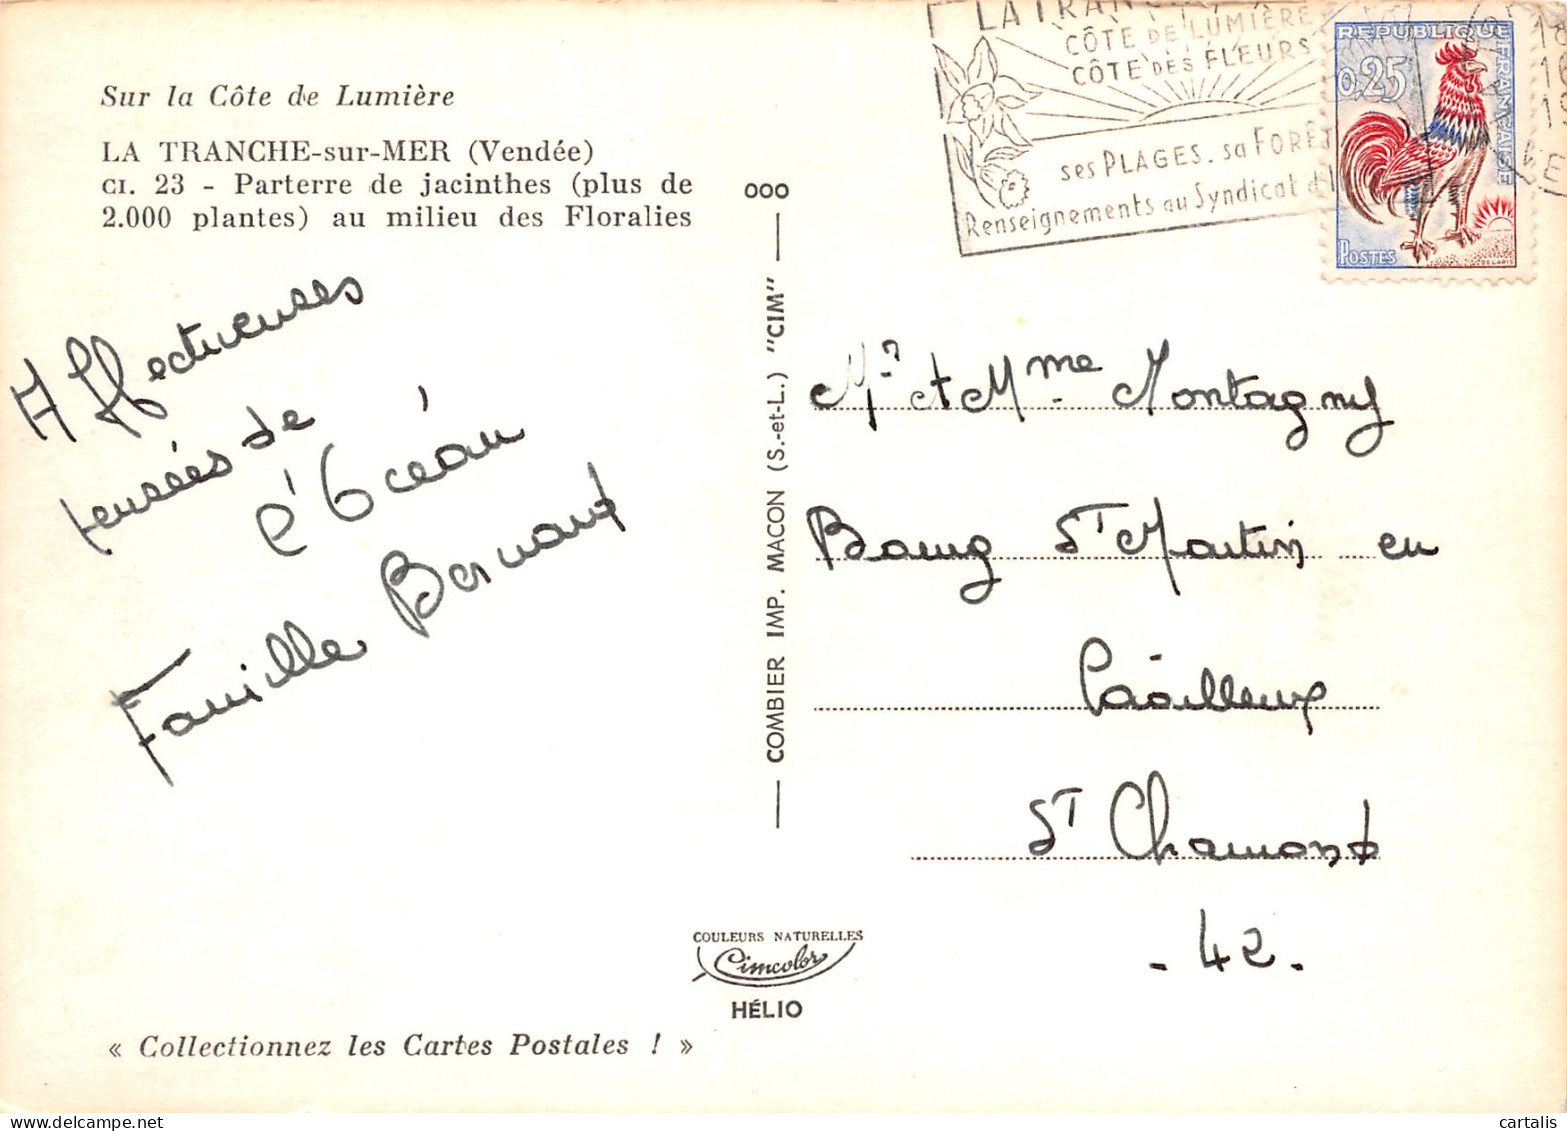 Sur la Côte de Lumière
LA TRANCHE-sur-MER (Vendée)
CI. 23 - Parterre de jacinthes (plus de
2.000 plantes) au milieu des Floralies
Affectueuses
pensées de
l'Océan
Famille Bernard
« Collectionnez les Cartes Postales ! »
OOO
COMBIER IMP. MACON (S.-et-L.) "CIM"
COULEURS NATURELLES
Cimcolor
HÉLIO
CÔTE DE LUMIÈRE
CÔTE DES FLEURS
ses PLAGES. sa FORÊT
Renseignements au Syndicat d'
REPUBLIQUE FRANÇAISE
0,25
POSTES
DECARIS
18
16
19
Mr et Mme Montagny
Bourg St Martin en
Coailleux
St Chamond
- 42 -
cartalis